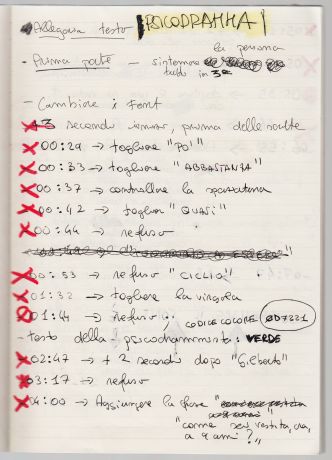 Allegare testo PSICODRAMMA
la persona
- Prima parte - sistemare
tutto in 3ª
- Cambiare i Font
+3 secondi prima delle scritte
00:29 → togliere "PO'"
00:33 → togliere "ABBASTANZA"
00:37 → controllare la spaziatura
00:42 → togliere "QUASI"
00:44 → refuso
00:53 → refuso "CICLIO"
01:32 → togliere la virgola
01:44 → refuso; CODICE COLORE 0D7221
- testo della psicodrammista: VERDE
02:47 → + 2 secondi dopo "Gilberto"
03:17 → refuso
04:00 → Aggiungere la frase
"come sei vestita, ora,
a 9 anni?"